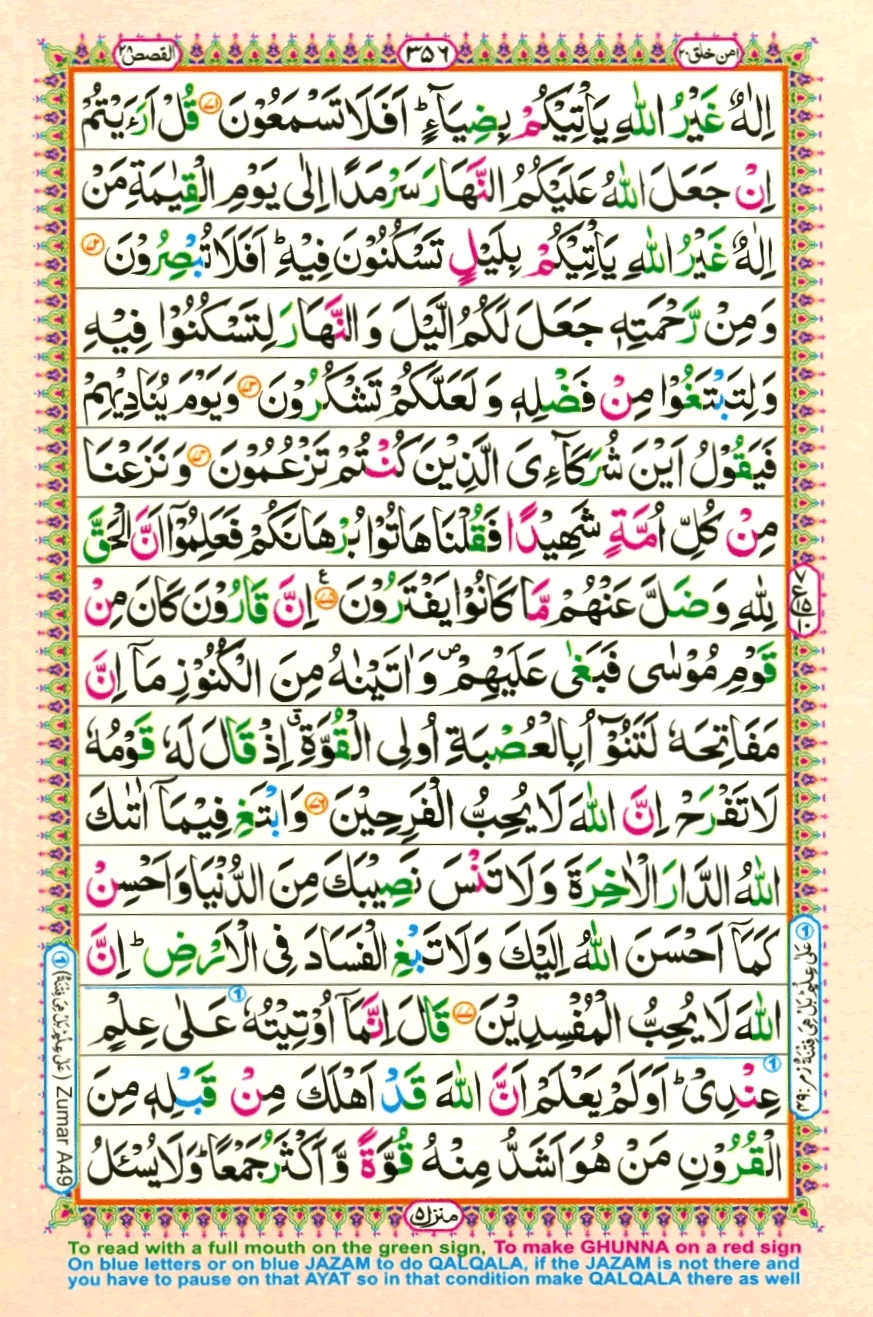 امن خلق ۲۰
۳۵۶
القصص ۲۸
اِلٰهٌ غَيْرُ اللّٰهِ يَاْتِيْكُمْ بِضِيَآءٍ ؕ اَفَلَا تَسْمَعُوْنَ ﴿۷۱﴾ قُلْ اَرَءَيْتُمْ
اِنْ جَعَلَ اللّٰهُ عَلَيْكُمُ النَّهَارَ سَرْمَدًا اِلٰى يَوْمِ الْقِيٰمَةِ مَنْ
اِلٰهٌ غَيْرُ اللّٰهِ يَاْتِيْكُمْ بِلَيْلٍ تَسْكُنُوْنَ فِيْهِ ؕ اَفَلَا تُبْصِرُوْنَ ﴿۷۲﴾
وَمِنْ رَّحْمَتِهٖ جَعَلَ لَكُمُ الَّيْلَ وَ النَّهَارَ لِتَسْكُنُوْا فِيْهِ
وَلِتَبْتَغُوْا مِنْ فَضْلِهٖ وَ لَعَلَّكُمْ تَشْكُرُوْنَ ﴿۷۳﴾ وَيَوْمَ يُنَادِيْهِمْ
فَيَقُوْلُ اَيْنَ شُرَكَآءِىَ الَّذِيْنَ كُنْتُمْ تَزْعُمُوْنَ ﴿۷۴﴾ وَ نَزَعْنَا
مِنْ كُلِّ اُمَّةٍ شَهِيْدًا فَقُلْنَا هَاتُوْا بُرْهَانَكُمْ فَعَلِمُوْٓا اَنَّ الْحَقَّ
لِلّٰهِ وَضَلَّ عَنْهُمْ مَّا كَانُوْا يَفْتَرُوْنَ ﴿۷۵﴾ ع اِنَّ قَارُوْنَ كَانَ مِنْ
قَوْمِ مُوْسٰى فَبَغٰى عَلَيْهِمْ ۪ وَاٰتَيْنٰهُ مِنَ الْكُنُوْزِ مَاۤ اِنَّ
مَفَاتِحَهٗ لَتَنُوْٓاُ بِالْعُصْبَةِ اُولِى الْقُوَّةِ ۗ اِذْ قَالَ لَهٗ قَوْمُهٗ
لَا تَفْرَحْ اِنَّ اللّٰهَ لَا يُحِبُّ الْفَرِحِيْنَ ﴿۷۶﴾ وَابْتَغِ فِيْمَاۤ اٰتٰىكَ
اللّٰهُ الدَّارَ الْاٰخِرَةَ وَلَا تَنْسَ نَصِيْبَكَ مِنَ الدُّنْيَا وَاَحْسِنْ
كَمَاۤ اَحْسَنَ اللّٰهُ اِلَيْكَ وَلَا تَبْغِ الْفَسَادَ فِى الْاَرْضِ ؕ اِنَّ
اللّٰهَ لَا يُحِبُّ الْمُفْسِدِيْنَ ﴿۷۷﴾ قَالَ اِنَّمَاۤ اُوْتِيْتُهٗ عَلٰى عِلْمٍ
عِنْدِىْ ؕ اَوَلَمْ يَعْلَمْ اَنَّ اللّٰهَ قَدْ اَهْلَكَ مِنْ قَبْلِهٖ مِنَ
الْقُرُوْنِ مَنْ هُوَ اَشَدُّ مِنْهُ قُوَّةً وَّ اَكْثَرُ جَمْعًا ؕ وَلَا يُسْـَٔلُ
۷ ع ۱۵ ۱۰
① عَلٰى عِلْمٍ ؕ بَلْ هِىَ فِتْنَةٌ زمر:۴۹
① (عَلٰى عِلْمٍ ؕ بَلْ هِىَ فِتْنَةٌ) Zumar A49
منزل ۵
To read with a full mouth on the green sign, To make GHUNNA on a red sign
On blue letters or on blue JAZAM to do QALQALA, if the JAZAM is not there and
you have to pause on that AYAT so in that condition make QALQALA there as well